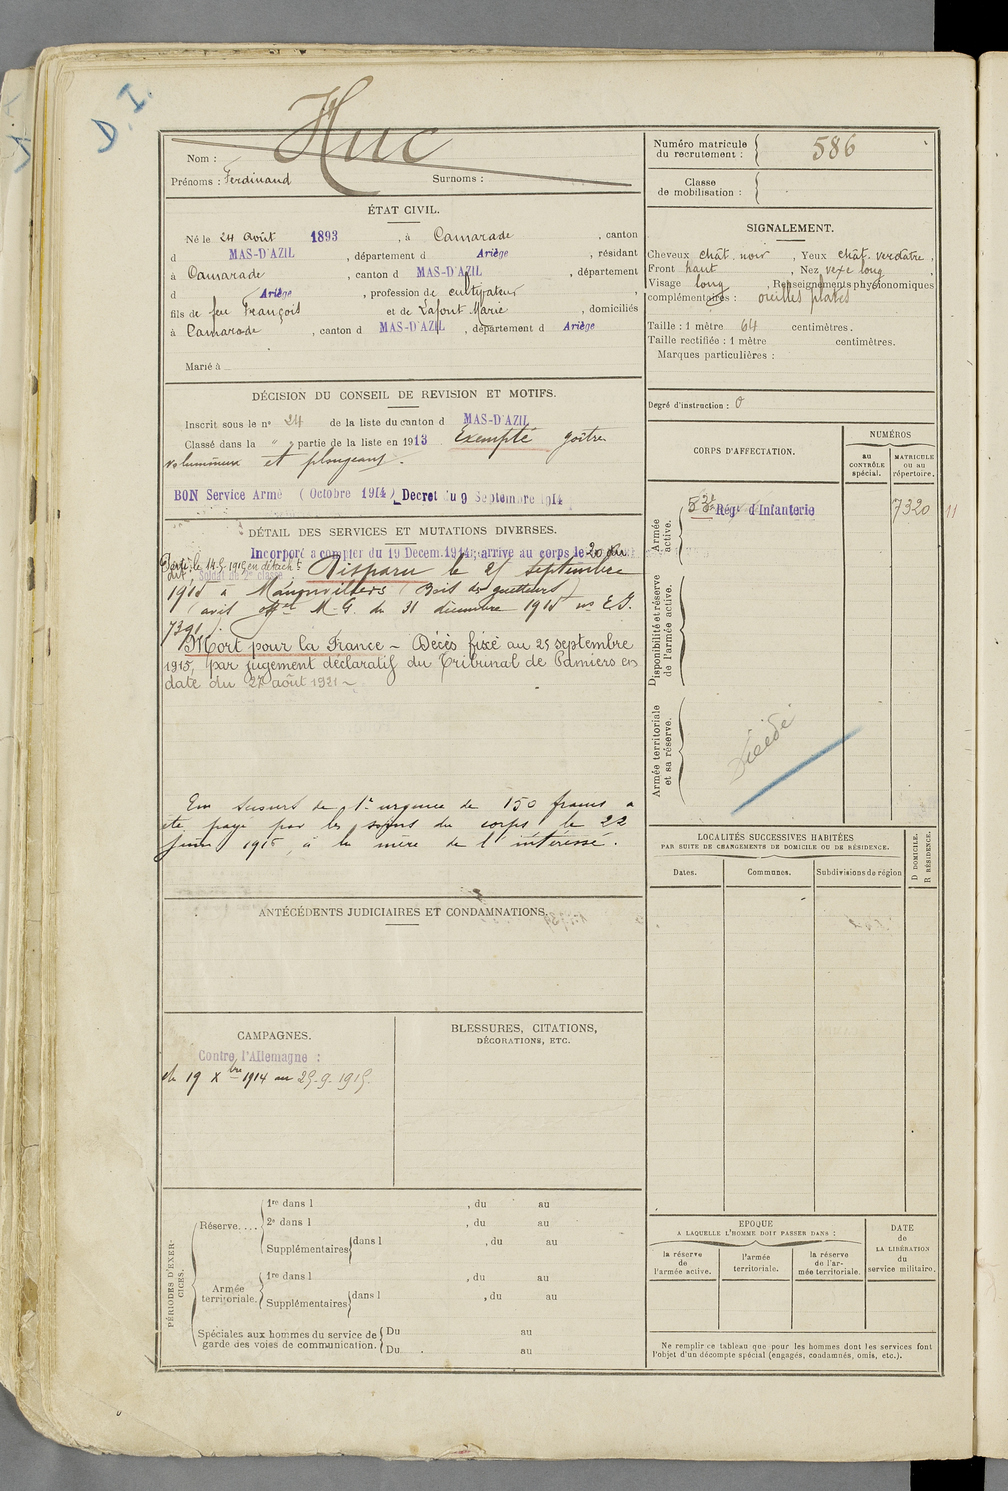 D. I.
Huc
Nom :
Prénoms : Ferdinand Surnoms :
ÉTAT CIVIL.
Né le 24 Août 1893, à Camarade, canton
d MAS-D'AZIL, département d Ariège, résidant
à Camarade, canton d MAS-D'AZIL, département
d Ariège, profession de cultivateur,
fils de feu François et de Lafont Marie, domiciliés
à Camarade, canton d MAS-D'AZIL, département d Ariège
Marié à
DÉCISION DU CONSEIL DE REVISION ET MOTIFS.
Inscrit sous le nº 24 de la liste du canton d MAS-D'AZIL
Classé dans la " partie de la liste en 1913 Exempté goitre
volumineux et plongeant.
BON Service Armé (Octobre 1914) Decret du 9 Septembre 1914
DÉTAIL DES SERVICES ET MUTATIONS DIVERSES.
Incorporé a compter du 19 Decem. 1914, arrivé au corps le 20 du
dit, Soldat de 2e classe
Disparu le 25 septembre
1915 à (Bois des guetteurs)
(avis off.el M.G. du 31 décembre 1915 no E.G.
7391).
Mort pour la France - Décès fixé au 25 septembre
1915, par jugement déclaratif du Tribunal de Pamiers en
date du 27 août 1921 ~
Un secours de 1re urgence de 150 francs a
été payé par les soins du corps le 22
juin 1916, à la mère de l'intéressé.
ANTÉCÉDENTS JUDICIAIRES ET CONDAMNATIONS.
CAMPAGNES.
Contre l'Allemagne :
du 19 Xbre 1914 au 25-9-1915.
BLESSURES, CITATIONS,
DÉCORATIONS, ETC.
PÉRIODES D'EXERCICES.
Réserve....
1re dans l , du au
2e dans l , du au
Supplémentaires dans l , du au
Armée
territoriale.
1re dans l , du au
Supplémentaires dans l , du au
Spéciales aux hommes du service de
garde des voies de communication.
Du au
Du au
Numéro matricule
du recrutement : 586
Classe
de mobilisation :
SIGNALEMENT.
Cheveux chât. noir, Yeux chât. verdâtre,
Front haut, Nez vexe long
Visage long, Renseignements physionomiques
complémentaires : oreilles plates
Taille : 1 mètre 64 centimètres.
Taille rectifiée : 1 mètre centimètres.
Marques particulières :
Degré d'instruction : 0
CORPS D'AFFECTATION.
NUMÉROS
au
CONTRÔLE
spécial.
MATRICULE
ou au
répertoire.
Armée
active.
Régt d'Infanterie
7320
11
Disponibilité et réserve
de l'armée active.
Armée territoriale
et sa réserve.
Décédé
LOCALITÉS SUCCESSIVES HABITÉES
PAR SUITE DE CHANGEMENTS DE DOMICILE OU DE RÉSIDENCE.
Dates.
Communes.
Subdivisions de région
D DOMICILE.
R RÉSIDENCE.
EPOQUE
A LAQUELLE L'HOMME DOIT PASSER DANS :
la réserve
de
l'armée active.
l'armée
territoriale.
la réserve
de l'ar-
mée territoriale.
DATE
de
LA LIBÉRATION
du
service militaire.
Ne remplir ce tableau que pour les hommes dont les services font
l'objet d'un décompte spécial (engagés, condamnés, omis, etc.).